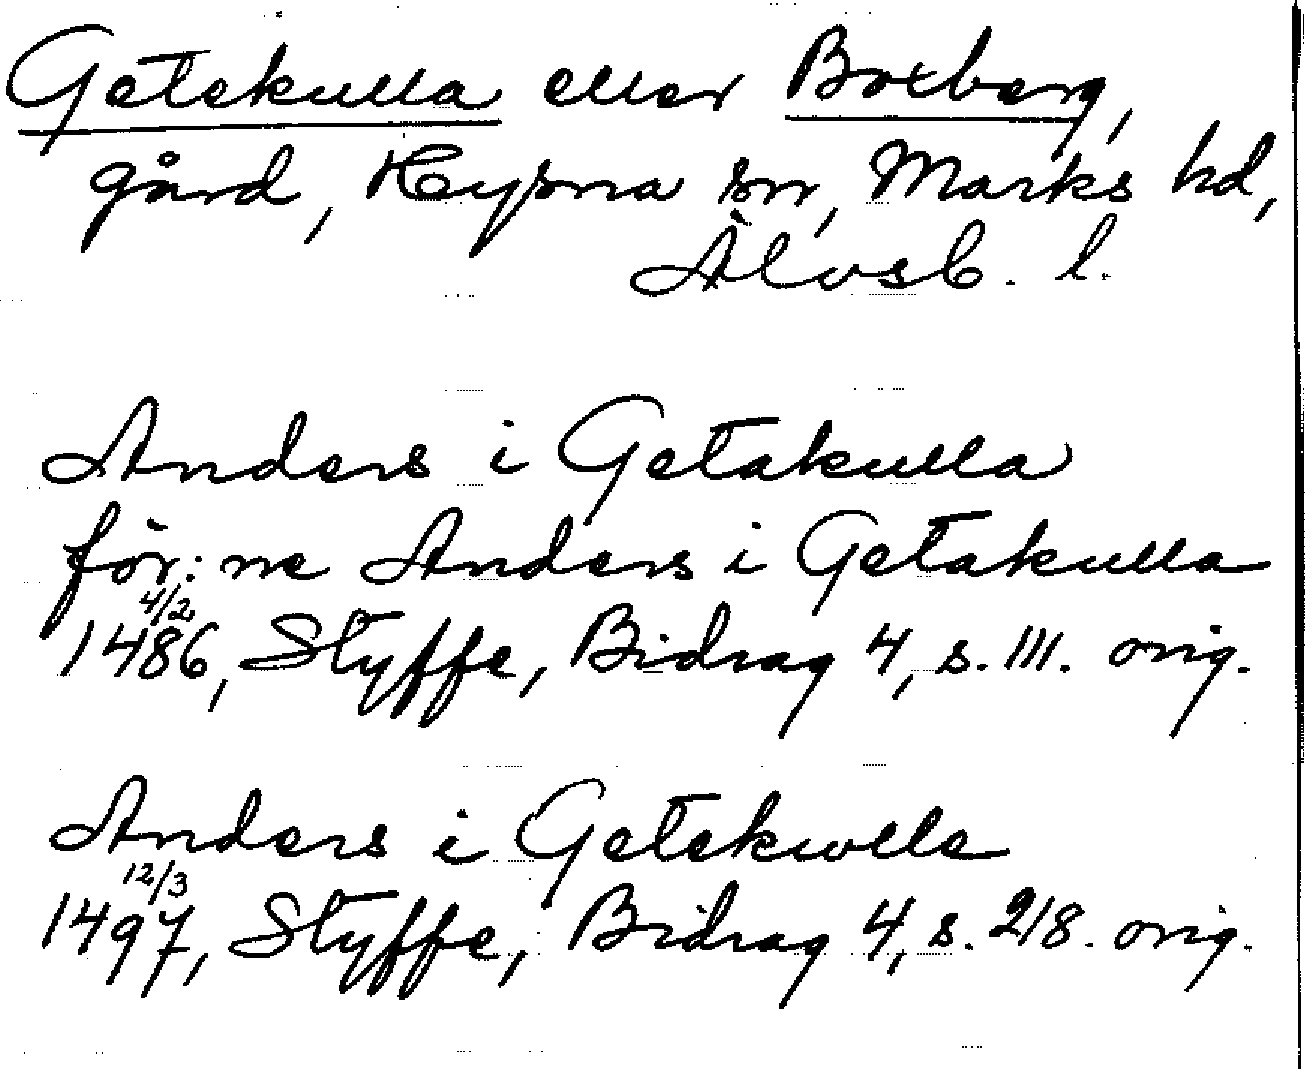 Getekulla eller Boxberg,
gård, Hyssna sn, Marks hd,
Älvsb. l.
Anders i Getakulla
för: ne Anders i Getakulla
4/2
1486, Styffe, Bidrag 4, s. 111. orig.
Anders i Getekwlle
12/3
1497, Styffe, Bidrag 4, s. 218. orig.